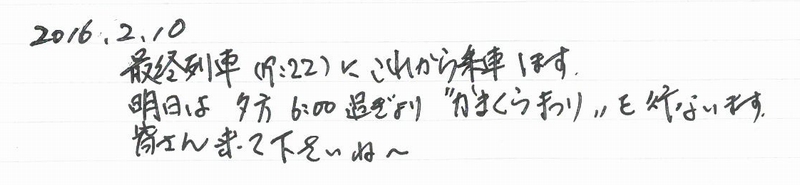 2016.2.10
最終列車(19:22)にこれから乗車します。
明日は 夕方 6:00過ぎより "かまくらまつり„を行ないます。
皆さん来て下さいね〜